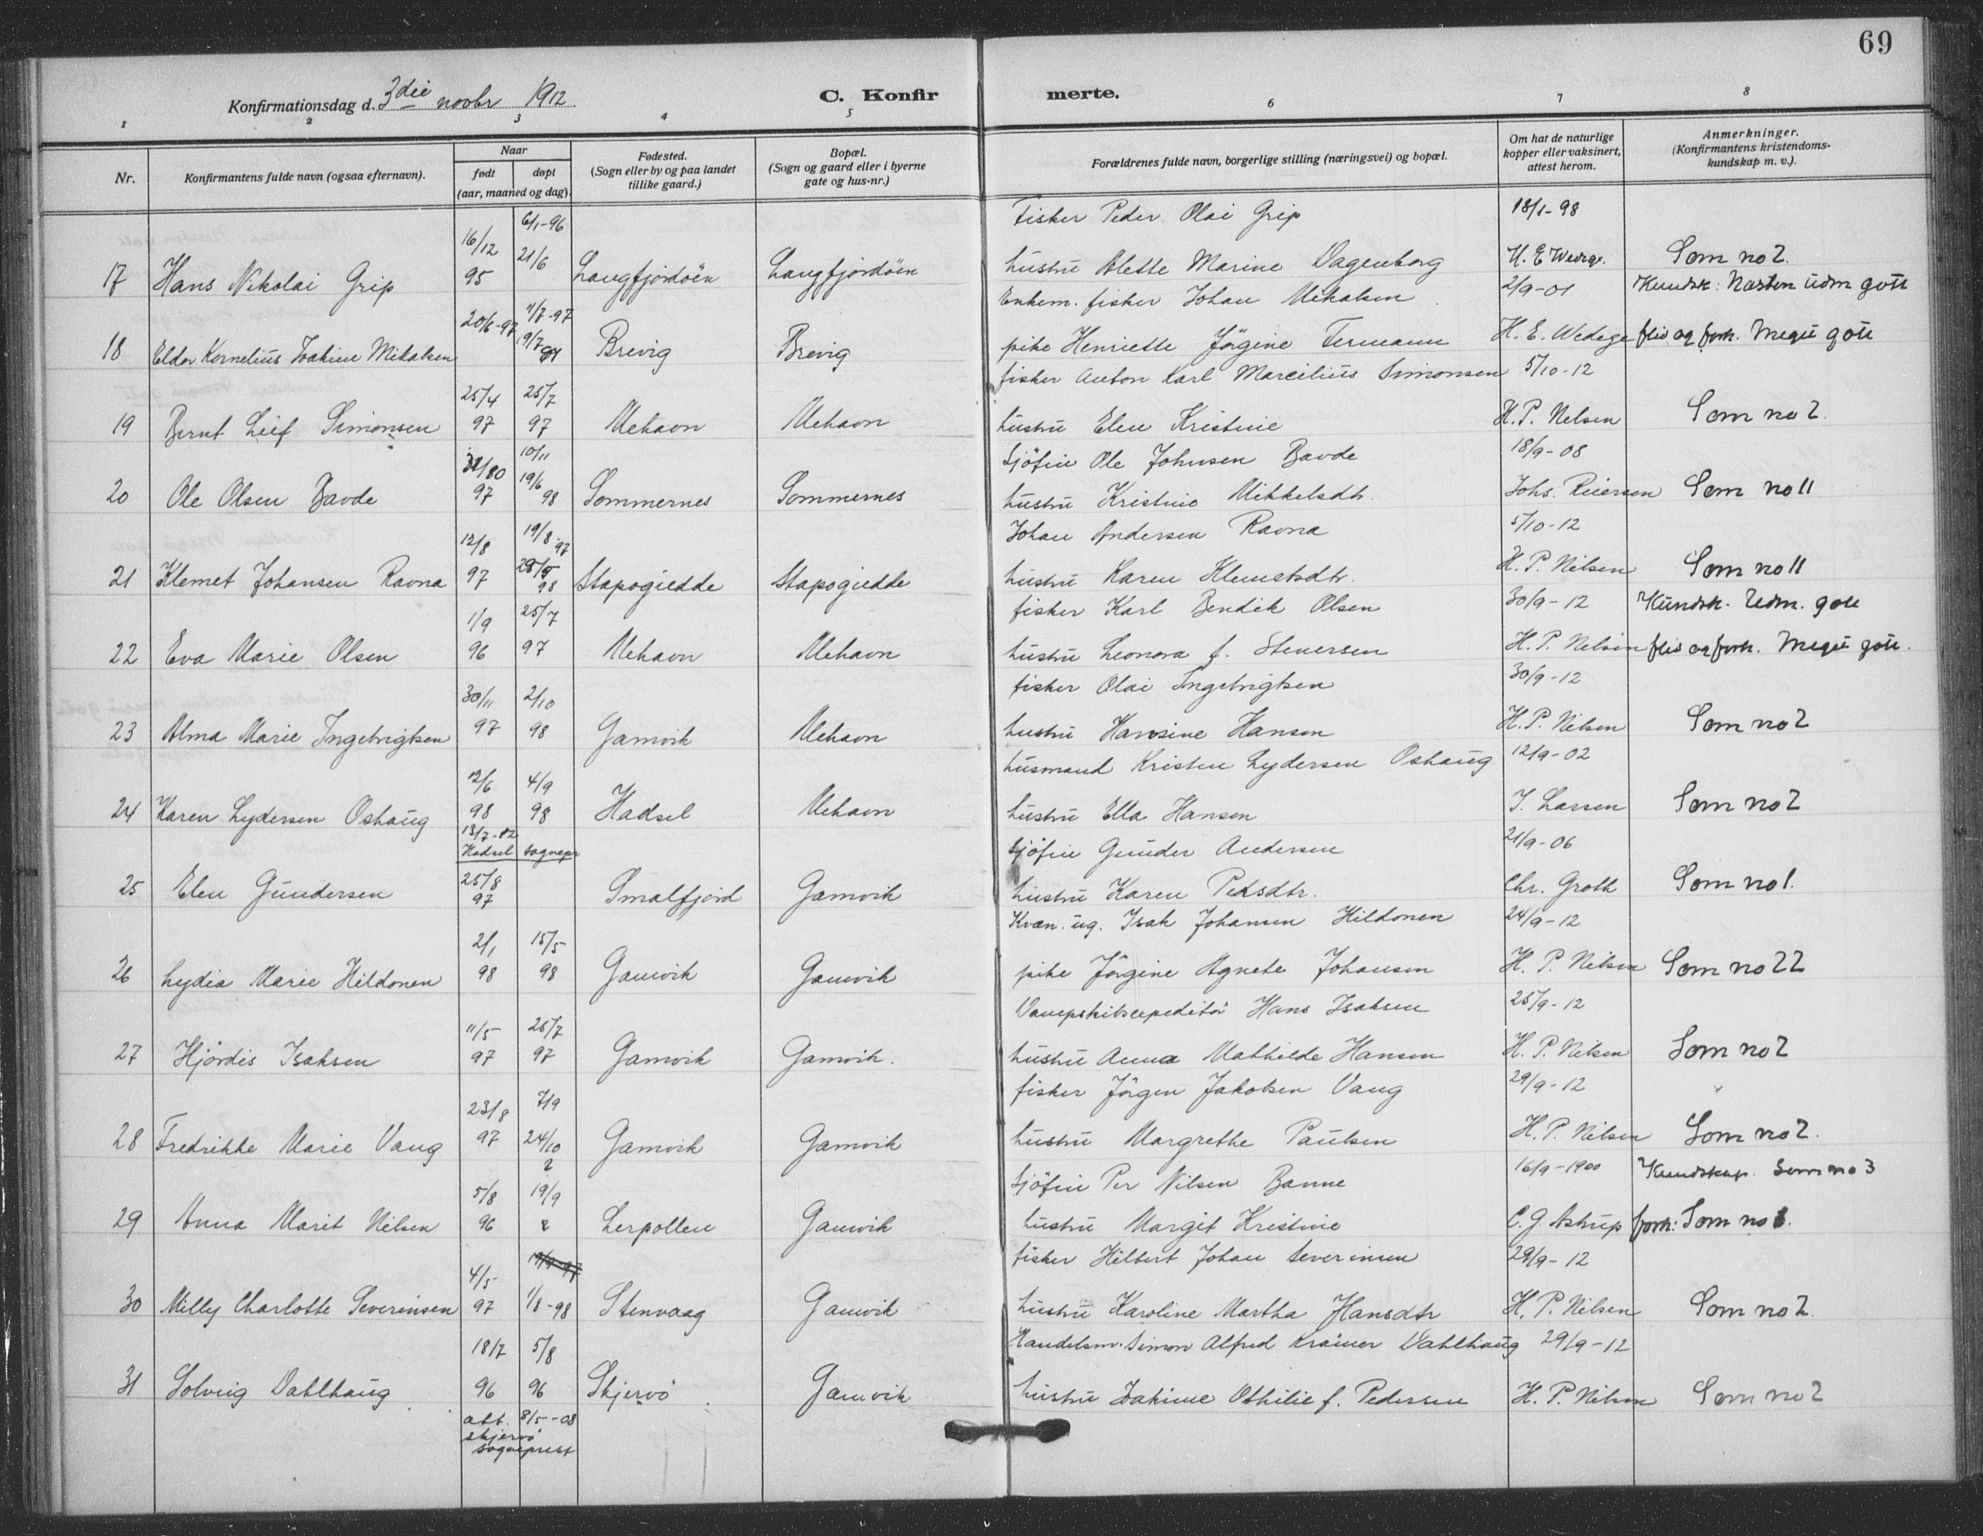 69
Konfirmationsdag d. 3die novbr 1912.
C. Konfirmerte.
1 2 3 4 5 6 7 8
Nr. | Konfirmantens fulde navn (ogsaa efternavn). | Naar født døpt (aar, maaned og dag). | Fødested. (Sogn eller by og paa landet tillike gaard.) | Bopæl. (Sogn og gaard eller i byerne gate og hus-nr.) | Forældrenes fulde navn, borgerlige stilling (næringsvei) og bopæl. | Om hat de naturlige kopper eller vaksinert, attest herom. | Anmerkninger. (Konfirmantens kristendoms- kundskap m. v.).
6/1-96 Fisker Peder Olai Grip 18/1-98
16/12 21/6
17 Hans Nikolai Grip 95 Langfjordöen Langfjordöen hustru Alette Marine Dagenborg H. E Wedege Som no 2.
20/6-97 7/7-97 Enkem. fisker Johan Mikalsen 2/9-01 Kundsk: Næsten udm godt
18 Eldor Kornelius Joakim Mikalsen 19/7 Brevig Brevig pike Henriette Jörgine Fermann H. E. Wedege flid og forh. Meget godt
25/4 25/7 fisker Anton Karl Marcilius Simonsen 5/10-12
19 Bernt Leif Simonsen 97 97 Mehavn Mehavn hustru Elen Kristine H. P. Nelsen Som no 2.
10/11 Sjöfin Ole Johnsen Bavde 18/9-08
20 Ole Olsen Bavde 97 19/6 98 Sommernes Sommernes hustru Kristine Mikkelsdtr. Johs. Reiersen Som no 11
12/8 19/8 97 Johan Andersen Ravna 5/10-12
21 Klemet Johansen Ravna 97 98 Stapogiedde Stapogiedde hustru Karen Klemetsdtr. H. P. Nilsen Som no 11
1/9 25/7 fisker Karl Bendik Olsen 30/9-12 Kundsk. Udm. godt
22 Eva Marie Olsen 96 97 Mehavn Mehavn hustru Leonora f. Stenersen H. P. Nelsen flid og forh. Meget godt.
30/11 2/10 fisker Olai Ingebrigtsen 30/9-12
23 Alma Marie Ingebrigtsen 97 98 Gamvik Mehavn hustru Hansine Hansen H. P. Nilsen Som no 2
12/6 4/9 husmand Kristen Lydersen Oshaug 12/9-02
24 Karen Lydersen Oshaug 98 98 Hadsel Mehavn hustru Ella Hansen J. Larsen Som no 2
13/7-12 Hadsel sognepr Sjöfin Gunder Andersen 21/9-06
25 Elen Gundersen 25/8 97 Smalfjord Gamvik hustru Karen Pedsdtr. Chr. Groth Som no 1.
2/1 15/5 Kvæn. ug. Isak Johansen Hildonen 24/9-12
26 Lydia Marie Hildonen 98 98 Gamvik Gamvik pike Jörgine Agnete Johansen H. P. Nilsen Som no 22
11/5 25/7 Dampskibsexpeditör Hans Isaksen 25/9-12
27 Hjördis Isaksen 97 97 Gamvik Gamvik. hustru Anna Mathilde Hansen H. P. Nilsen Som no 2
23/8 7/9 fisker Jörgen Jakobsen Vang 29/9-12
28 Fredrikke Marie Vang 97 24/10 Gamvik Gamvik hustru Margrethe Paulsen H. P. Nilsen Som no 2.
5/8 19/9 Sjöfin Per Nilsen Banne 16/9-1900 Kundskap. Som no 3
29 Anna Marit Nilsen 96 Lerpollen Gamvik hustru Margit Kristine C. G. Astrup forh: Som no 1.
4/5 fisker Hilbert Johan Severinsen 29/9-12
30 Milly Charlotte Severinsen 97 1/8-98 Stenvaag Gamvik hustru Karoline Martha Hansdtr H. P. Nilsen Som no 2.
18/7 5/8 Handelsm. Simon Alfred Krämer Dahlhaug 29/9-12
31 Solveig Dahlhaug 96 96 Skjervö Gamvik hustru Joakime Othilie f. Pedersen H. P. Nilsen Som no 2
att. 8/5-08
skjervö
sogneprest